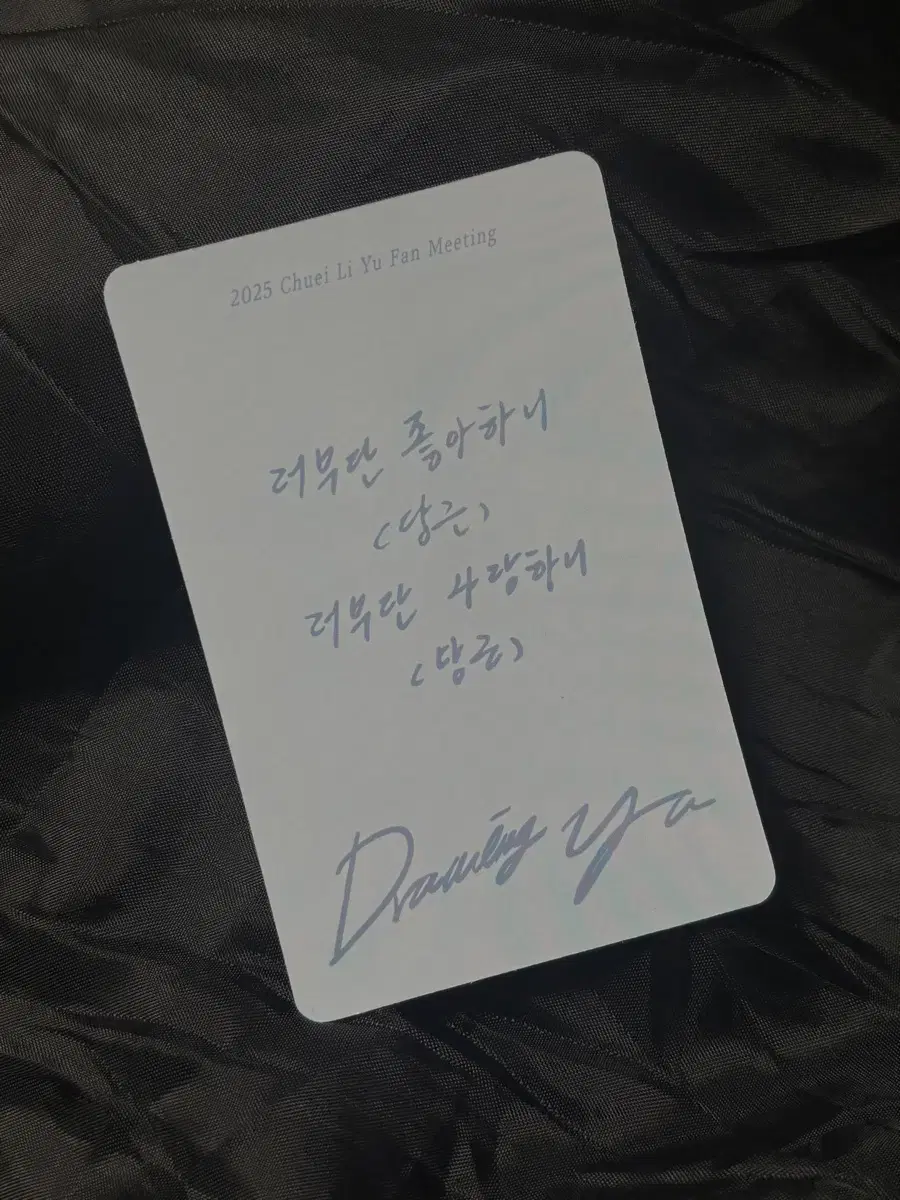 2025 Chuei Li Yu Fan Meeting
러부단 좋아하니
(당근)
러부단 사랑하니
(당근)
Drawing Yu